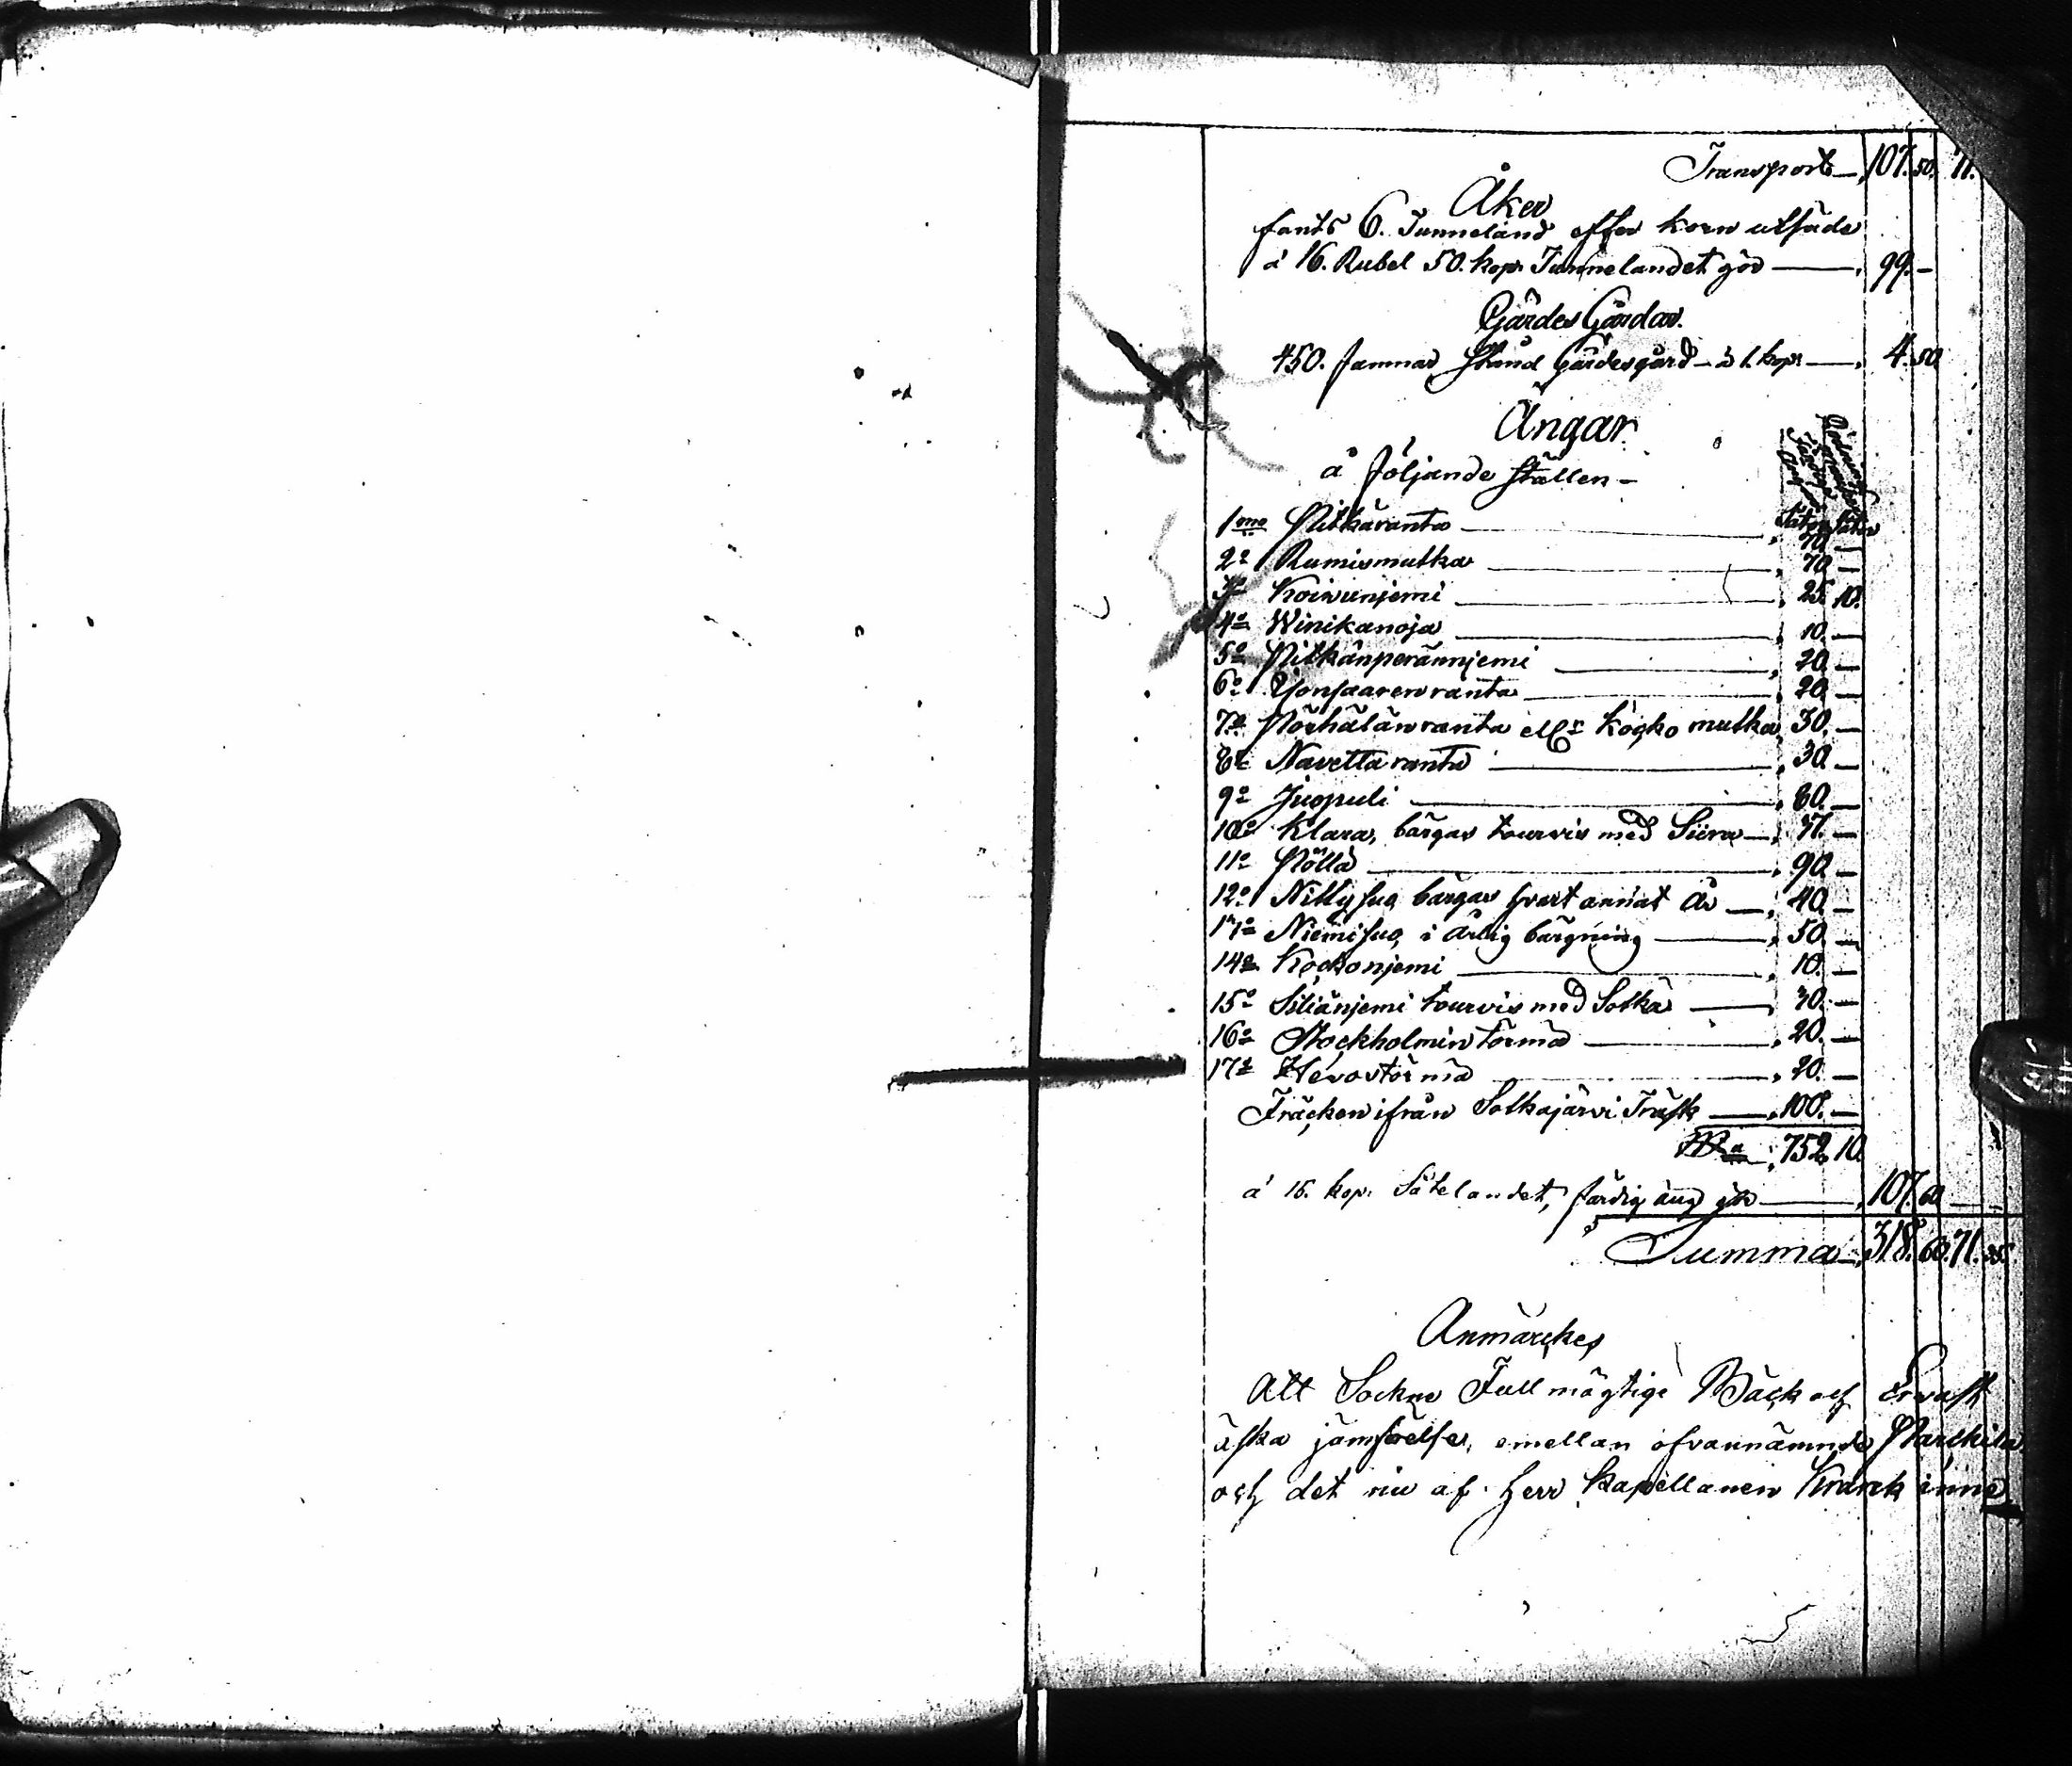 Transport 107. 50. 71.
Åker
fants 6. Tunneland efter korn utsäde
á 16. Rubel 50. kop. Tunnelandet gör 99. –
Gärdes Gårdar.
450. famnar stånd gärdesgård – à 1. kop. 4. 50.
Ängar
å följande ställen –
1mo Pitkäranta 70. –
2o Rumismutka 70. –
3o Koiwunjemi 25. 10.
4o Winikanoja 10. –
5o Pitkänperännjemi 20. –
6o 20. –
7o Pörhälänranta ellr Kocko mutka 30. –
8o Navetta ranta 30. –
9o Juopuli 80. –
10o Klara, bärgas tourvis med Siira 37. –
11o Pöllä 90. –
12o bärgas hvart annat År 40. –
13o i årlig bärgning 50. –
14o Kockonjemi 10. –
15o Siliänjemi tourvis med Sotka 30. –
16o Stockholmin törmä 20. –
17o Hevostörmä 20. –
Fräcken ifrån Sotkajärvi Träsk 100. –
752. 10.
á 15. kop. Sätelandet, färdig äng gör 107. 60
Summa 318. 60. 71. 25.
Anmärckes
Att Sockne Fullmägtige Bäck och Ervast
äska jämförelse, emellan ofvannämnde
och det nu af Herr Kapellanen Krank inne